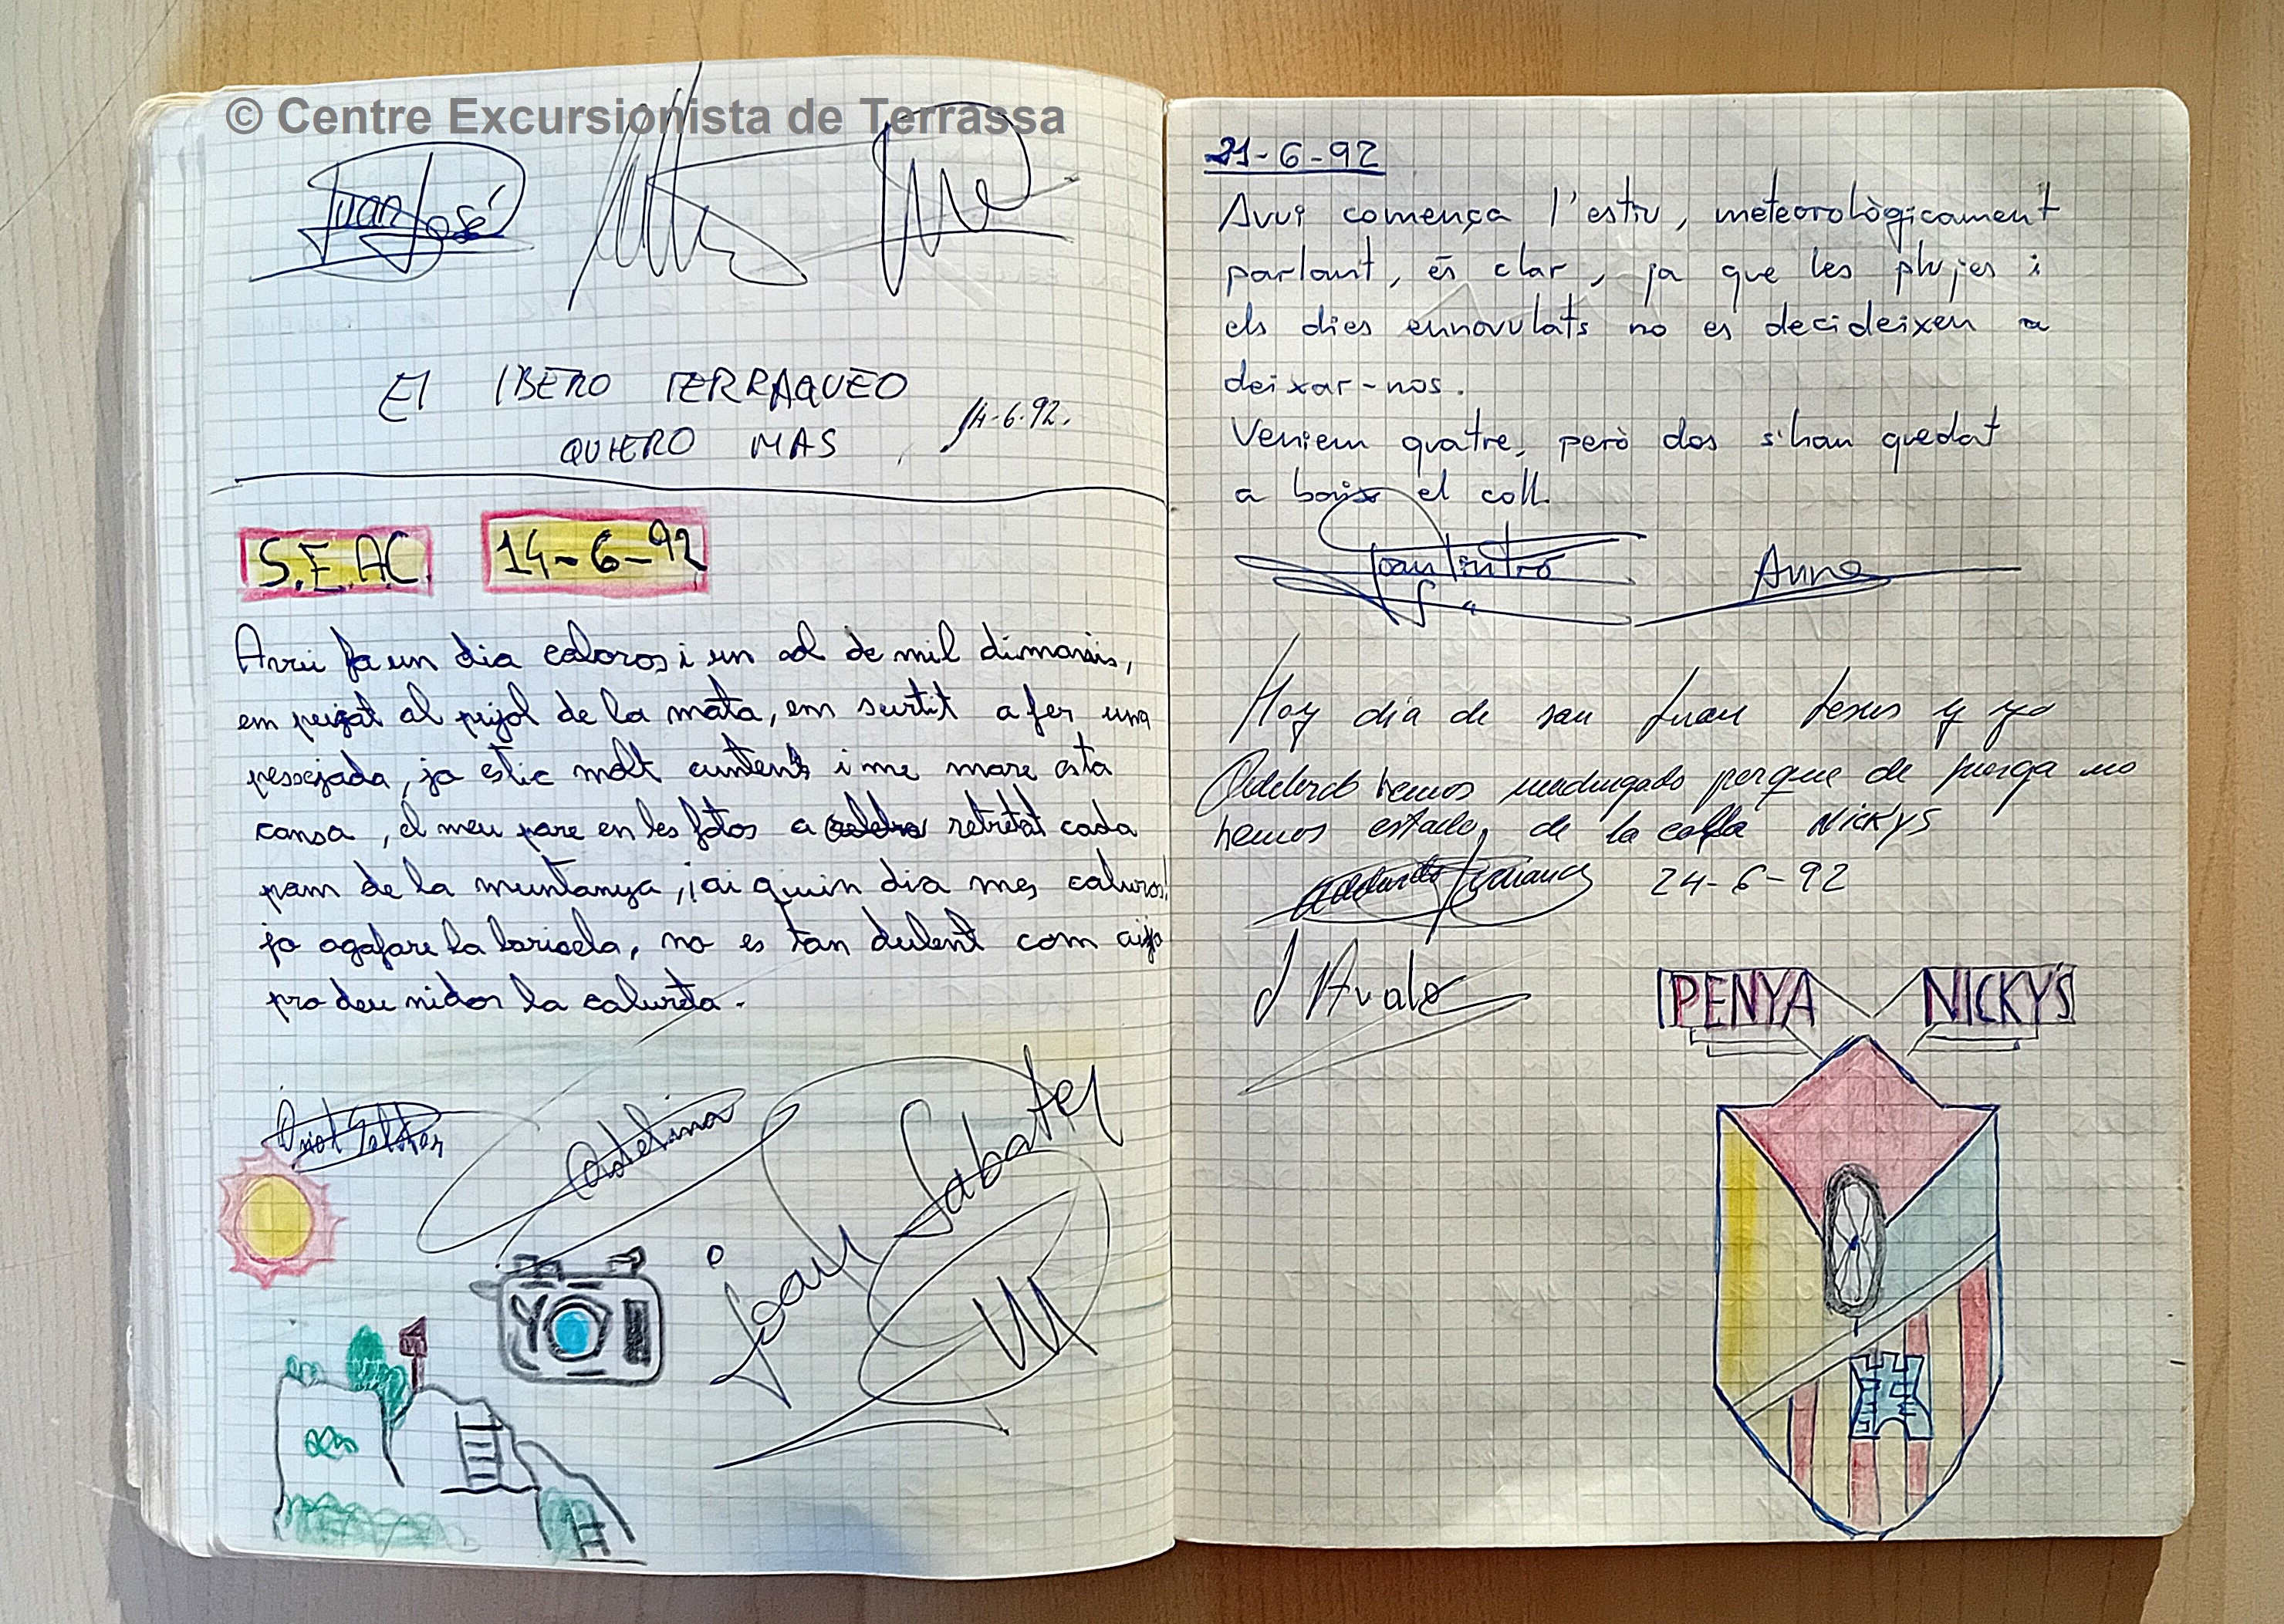 © Centre Excursionista de Terrassa
Juan José
El IBERO TERRAQUEO
QUIERO MAS
14-6-92.
S.E.A.C. 14-6-92
Avui fa un dia caloros i un sol de mil dimonis,
em pujat al pujol de la mata, em surtit a fer una
pessejada, jo estic molt cuntent i me mare esta
cansa, el meu pare en les fotos a retretat cada
pam de la muntanya, ¡ai quin dia mes caluros!
jo agafare la barisela, no es tan dulent com aixo
pro deu nidor la calureta.
Adelina
Joan Sabater
21-6-92
Avui comença l'estiu, meteorològicament
parlant, és clar, ja que les plujes i
els dies ennovulats no es decideixen a
deixar-nos.
Veniem quatre, però dos s'han quedat
a baix el coll.
Joan Pintró
Anna
Hoy día de san Juan Jesus y yo
hemos madrugado porque de juerga no
hemos estado, de la colla NICKYS
24-6-92
PENYA NICKY'S